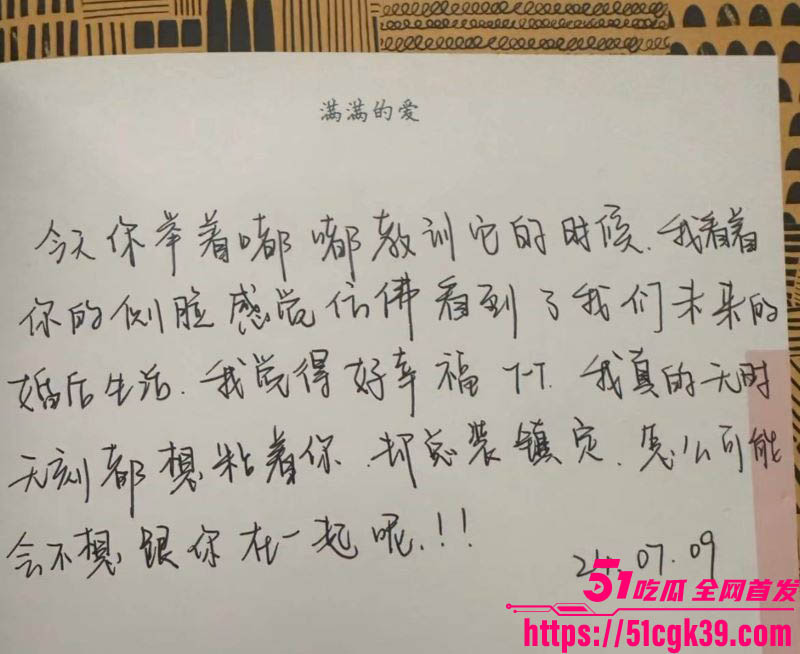 满满的爱
今天你举着嘟嘟教训它的时候.我看着
你的侧脸感觉仿佛看到了我们未来的
婚后生活.我觉得好幸福 T-T. 我真的无时
无刻都想粘着你.却总装镇定.怎么可能
会不想跟你在一起呢.!!
24.07.09
51吃瓜 全网首发
https://51cgk39.com